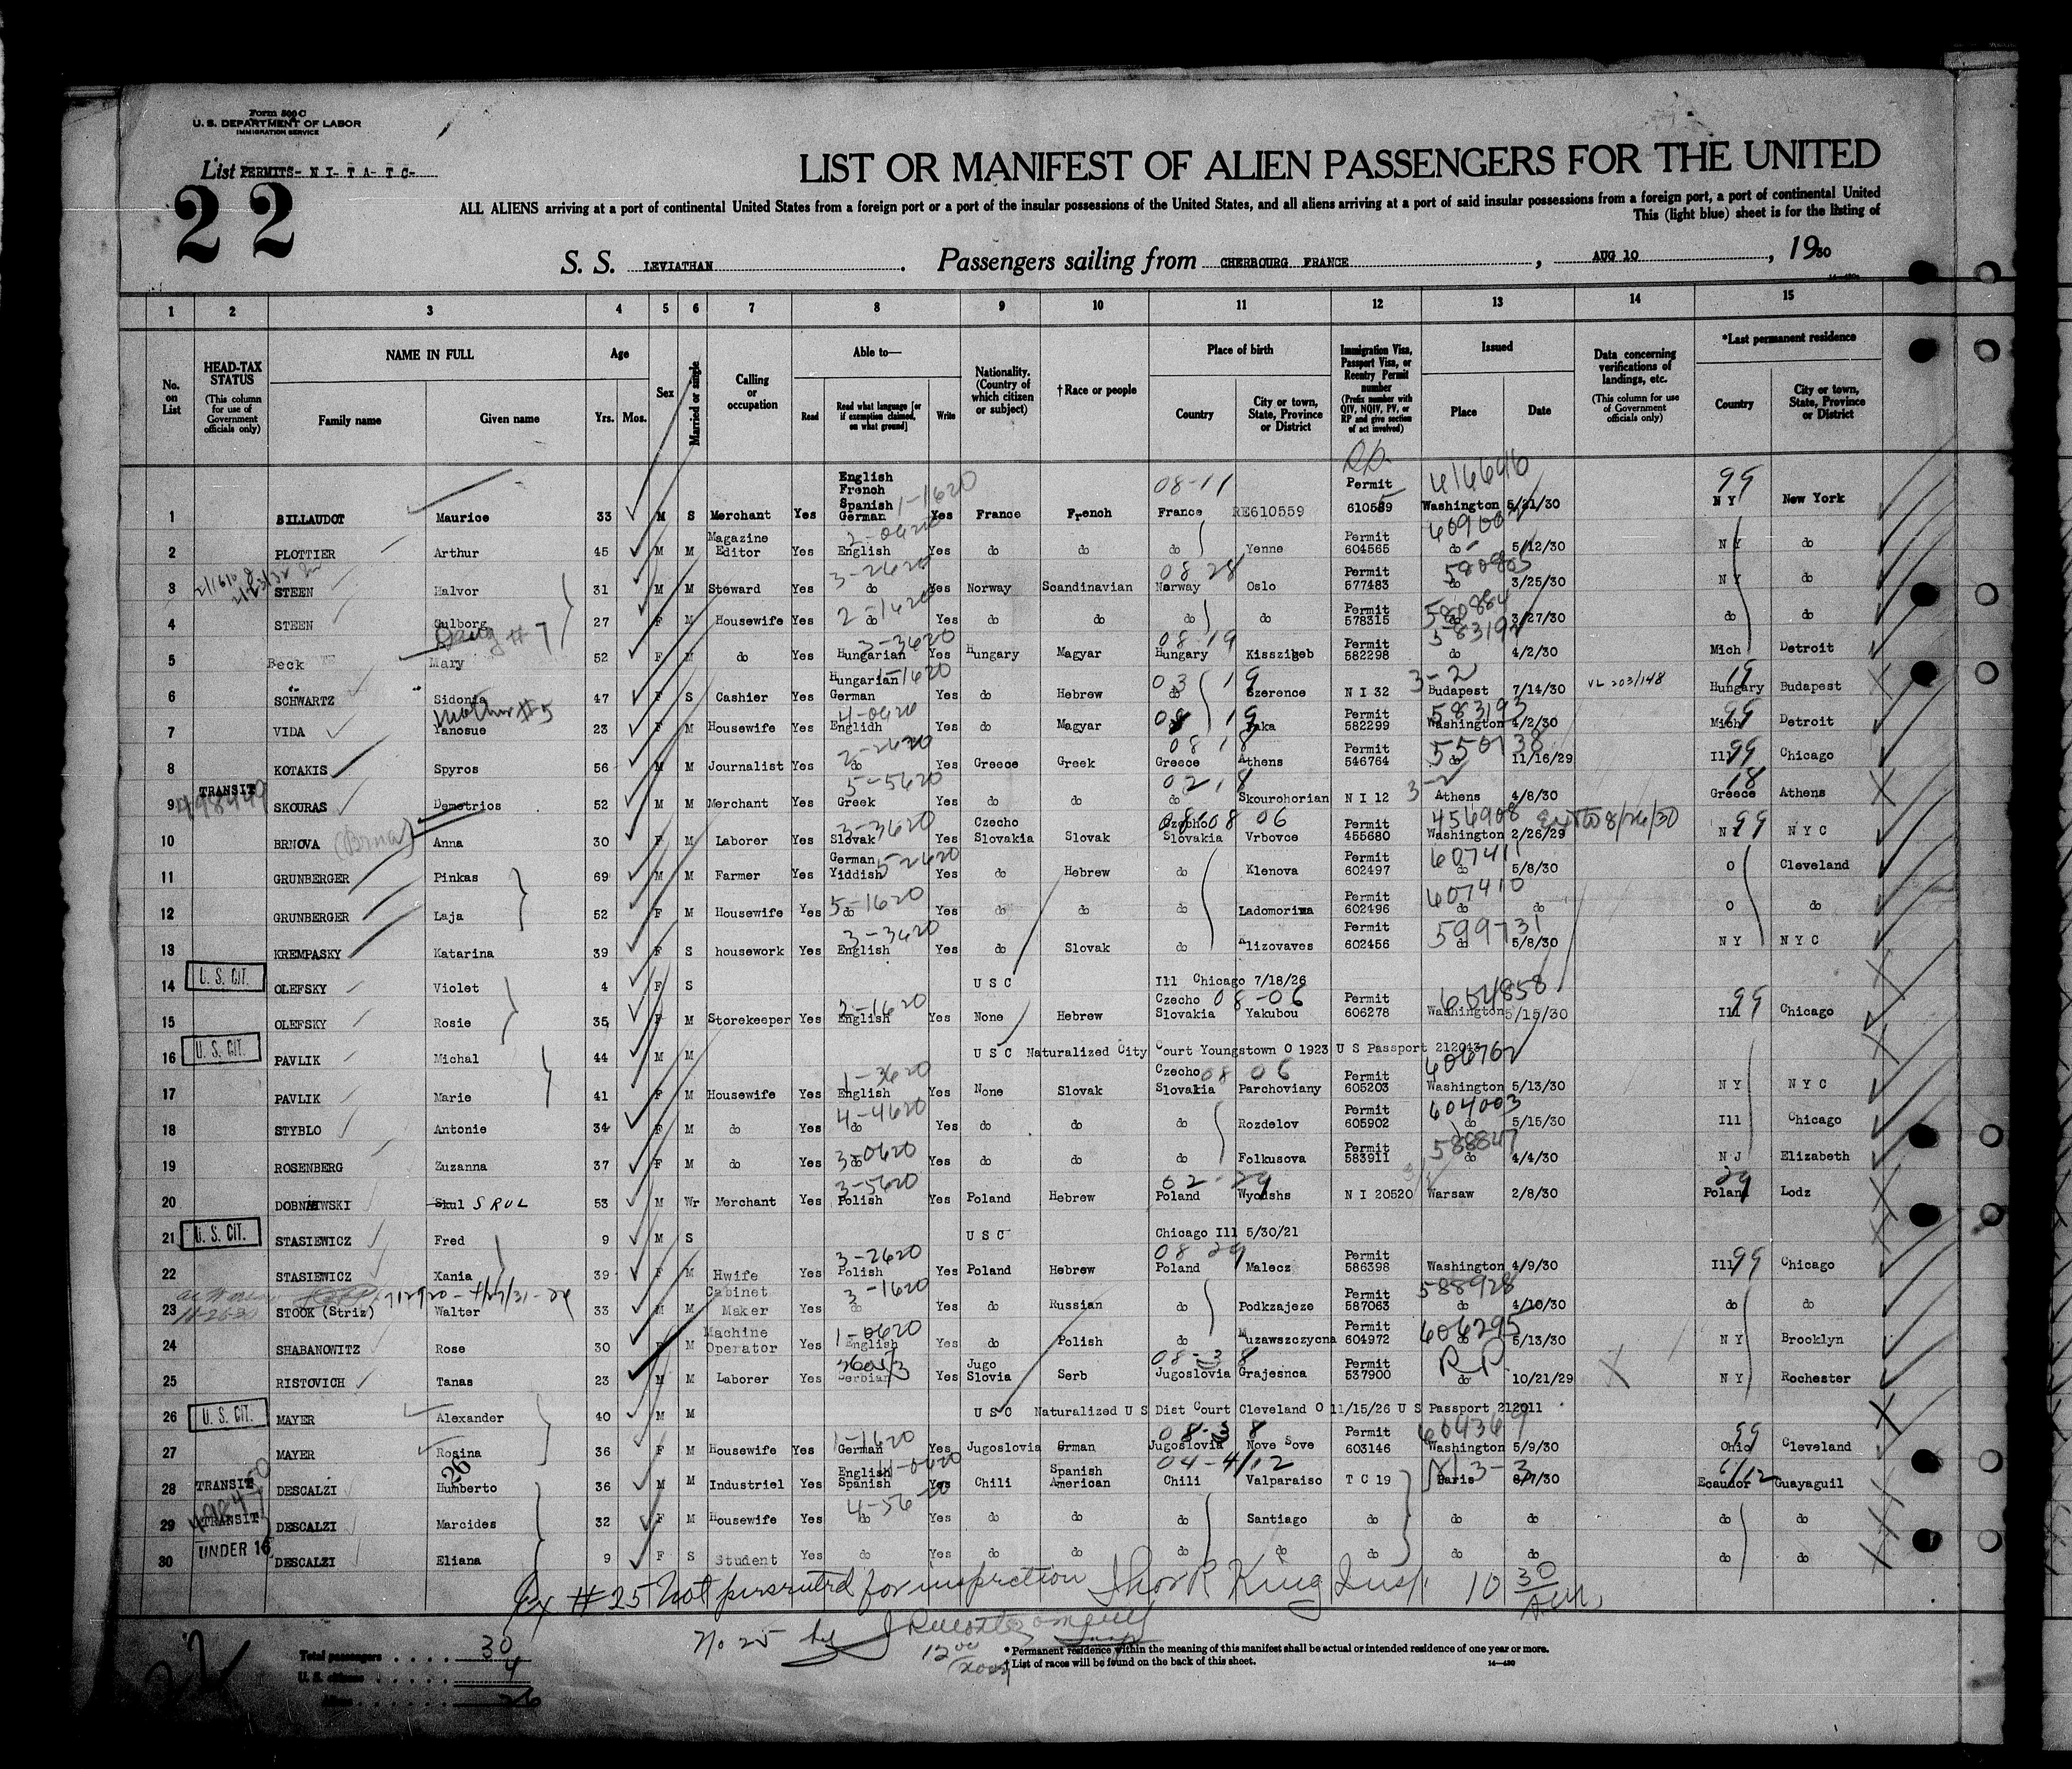 Form 500 C
U. S. DEPARTMENT OF LABOR
IMMIGRATION SERVICE
List PERMITS- N I- T A- T C-
22
LIST OR MANIFEST OF ALIEN PASSENGERS FOR THE UNITED
ALL ALIENS arriving at a port of continental United States from a foreign port or a port of the insular possessions of the United States, and all aliens arriving at a port of said insular possessions from a foreign port, a port of continental United
This (light blue) sheet is for the listing of
S. S. LEVIATHAN . Passengers sailing from CHERBOURG FRANCE , AUG 10 , 1930
1 2 3 4 5 6 7 8 9 10 11 12 13 14 15
No. on List
HEAD-TAX STATUS (This column for use of Government officials only)
NAME IN FULL
Family name Given name
Age Yrs. Mos.
Sex
Married or single
Calling or occupation
Able to—
Read Read what language [or if exemption claimed, on what ground] Write
Nationality. (Country of which citizen or subject)
†Race or people
Place of birth
Country City or town, State, Province or District
Immigration Visa, Passport Visa, or Reentry Permit number (Prefix number with QIV, NQIV, PV, or RP and give section of act involved)
Issued
Place Date
Data concerning verifications of landings, etc. (This column for use of Government officials only)
*Last permanent residence
Country City or town, State, Province or District
1 BILLAUDOT Maurice 33 M S Merchant Yes English French Spanish German 1-1620 Yes France French 08-11 France RE610559 Permit 610559 416646 Washington 5/21/30 99 N Y New York
2 PLOTTIER Arthur 45 M M Magazine Editor Yes English Yes do do do Yenne Permit 604565 do 5/12/30 N Y do
3 STEEN Halvor 31 M M Steward Yes 3-2620 do Yes Norway Scandinavian 08 28 Norway Oslo Permit 577483 580805 do 3/25/30 N Y do
4 STEEN Gulborg 27 F M Housewife Yes 2-1620 do Yes do do do do Permit 578315 580884 do 3/27/30 do do
Daug # 7
5 Beck Mary 52 F M do Yes 3-3620 Hungarian Yes Hungary Magyar 08 19 Hungary Kisszigeb Permit 582298 do 4/2/30 Mich Detroit
6 SCHWARTZ Sidonia 47 F S Cashier Yes Hungarian German 1-1620 Yes do Hebrew 03 19 do Szerence N I 32 3-2 Budapest 7/14/30 VL 203/148 19 Hungary Budapest
Mother #5
7 VIDA Yanosue 23 F M Housewife Yes 4-0620 Englidh Yes do Magyar 08 19 do Permit 582299 583193 Washington 4/2/30 99 Mich Detroit
8 KOTAKIS Spyros 56 M M Journalist Yes 2-2620 do Yes Greece Greek 08 18 Greece Athens Permit 546764 550738 do 11/16/29 Ill 99 Chicago
9 TRANSIT SKOURAS Demetrios 52 M M Merchant Yes 5-5620 Greek Yes do do 02 18 do Skourohorian N I 12 3-2 Athens 4/8/30 18 Greece Athens
10 BRNOVA (Brna) Anna 30 F M Laborer Yes 3-3620 Slovak Yes Czecho Slovakia Slovak 08 06 Czecho Slovakia Vrbovce Permit 455680 456908 Washington 2/26/29 8/26/30 N Y 99 N Y C
11 GRUNBERGER Pinkas 69 M M Farmer Yes German Yiddish 5-2620 Yes do Hebrew do Klenova Permit 602497 607411 do 5/8/30 O Cleveland
12 GRUNBERGER Laja 52 F M Housewife Yes 5-1620 do Yes do do do Ladomorima Permit 602496 607410 do do O do
13 KREMPASKY Katarina 39 F S housework Yes 3-3620 English Yes do Slovak do Alizovaves Permit 602456 599731 do 5/8/30 N Y N Y C
14 U. S. CIT. OLEFSKY Violet 4 F S U S C Ill Chicago 7/18/26
15 OLEFSKY Rosie 35 F M Storekeeper Yes 2-1620 English Yes None Hebrew Czecho Slovakia 08-06 Yakubou Permit 606278 654858 Washington 5/15/30 Ill 99 Chicago
16 U. S. CIT. PAVLIK Michal 44 M M U S C Naturalized City Court Youngstown O 1923 U S Passport 212043
17 PAVLIK Marie 41 F M Housewife Yes 1-3620 English Yes None Slovak Czecho Slovakia 08 06 Parchoviany Permit 605203 606762 Washington 5/13/30 N Y N Y C
18 STYBLO Antonie 34 F M do Yes 4-4620 do Yes do do do Rozdelov Permit 605902 604003 do 5/15/30 Ill Chicago
19 ROSENBERG Zuzanna 37 F M do Yes 3-0620 do Yes do do do Folkusova Permit 583911 588847 do 4/4/30 N J Elizabeth
20 DOBNAWSKI Skul SRUL 53 M Wr Merchant Yes 3-5620 Polish Yes Poland Hebrew 02-29 Poland Wyodshs N I 20520 Warsaw 2/8/30 29 Poland Lodz
21 U. S. CIT. STASIEWICZ Fred 9 M S U S C Chicago Ill 5/30/21
22 STASIEWICZ Xania 39 F M Hwife Yes 3-2620 Polish Yes Poland Hebrew 08 29 Poland Malecz Permit 586398 Washington 4/9/30 Ill 99 Chicago
23 STOOK (Striz) Walter 33 M M Cabinet Maker Yes 3-1620 do Yes do Russian do Podkzajeze Permit 587063 588928 do 4/10/30 do do
24 SHABANOWITZ Rose 30 F M Machine Operator Yes 1-0620 English Yes do Polish do Muzawszczycna Permit 604972 606295 do 5/13/30 N Y Brooklyn
25 RISTOVICH Tanas 23 M M Laborer Yes Serbian Yes Jugo Slovia Serb 08-38 Jugoslovia Grajesnca Permit 537900 R.P. do 10/21/29 N Y Rochester
26 U. S. CIT. MAYER Alexander 40 M M U S C Naturalized U S Dist Court Cleveland O 11/15/26 U S Passport 212011
27 MAYER Rosina 36 F M Housewife Yes 1-1620 German Yes Jugoslovia Grman 08-38 Jugoslovia Nove Sove Permit 603146 604369 Washington 5/9/30 99 Ohio Cleveland
28 TRANSIT DESCALZI Humberto 26 36 M M Industriel Yes English Spanish Yes Chili Spanish American 04-4/12 Chili Valparaiso T C 19 3-3 Paris 6/7/30 Ecaudor Guayaguil
29 TRANSIT DESCALZI Marcides 32 F M Housewife Yes do Yes do do do Santiago do do do do do
30 UNDER 16 DESCALZI Eliana 9 F S Student Yes do Yes do do do do do do do do do
Ex #25 Not presented for inspection Thos R King Insp. 10 30 AM.
No 25 by
12 00 noon
Total passengers . . . . 30
U. S. citizens . . . . . . 4
Aliens . . . . . . 26
22
* Permanent residence within the meaning of this manifest shall be actual or intended residence of one year or more.
† List of races will be found on the back of this sheet.
14—430